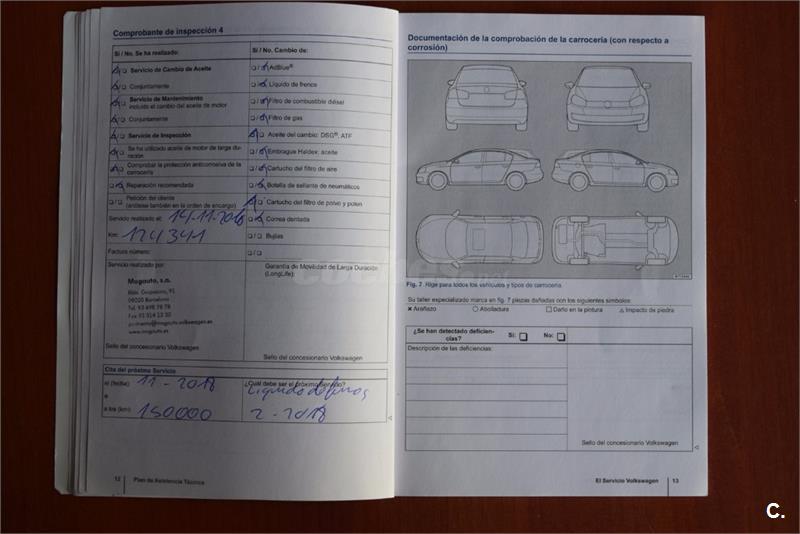 Comprobante de inspección 4
Sí / No. Se ha realizado:
Servicio de Cambio de Aceite
Conjuntamente
Servicio de Mantenimiento
incluido el cambio del aceite de motor
Conjuntamente
Servicio de Inspección
Se ha utilizado aceite de motor de larga du-
ración
Comprobar la protección anticorrosiva de la
carrocería
Reparación recomendada
Petición del cliente
(anótese también en la orden de encargo)
Servicio realizado el: 14.11.2016
Km: 124341
Factura número:
Sí / No. Cambio de:
AdBlue®
Líquido de frenos
Filtro de combustible diésel
Filtro de gas
Aceite del cambio: DSG®, ATF
Embrague Haldex: aceite
Cartucho del filtro de aire
Botella de sellante de neumáticos
Cartucho del filtro de polvo y polen
Correa dentada
Bujías
Servicio realizado por:
Mogauto, s.a.
08020 Barcelona
Tel. 93 498 78 78
www.mogauto.es
Sello del concesionario Volkswagen
Garantía de Movilidad de Larga Duración
(LongLife):
Sello del concesionario Volkswagen
Cita del próximo Servicio
el (fecha) 11-2018
o
a los (km) 150000
¿Cuál debe ser el próximo Servicio?
Liquido de frenos
2-2018
12 Plan de Asistencia Técnica
Documentación de la comprobación de la carrocería (con respecto a
corrosión)
Fig. 7 Rige para todos los vehículos y tipos de carrocería.
Su taller especializado marca en fig. 7 piezas dañadas con los siguientes símbolos:
× Arañazo ○ Abolladura □ Daño en la pintura △ Impacto de piedra
¿Se han detectado deficien-
cias? Sí: No:
Descripción de las deficiencias:
Sello del concesionario Volkswagen
El Servicio Volkswagen 13
coches.net
C.